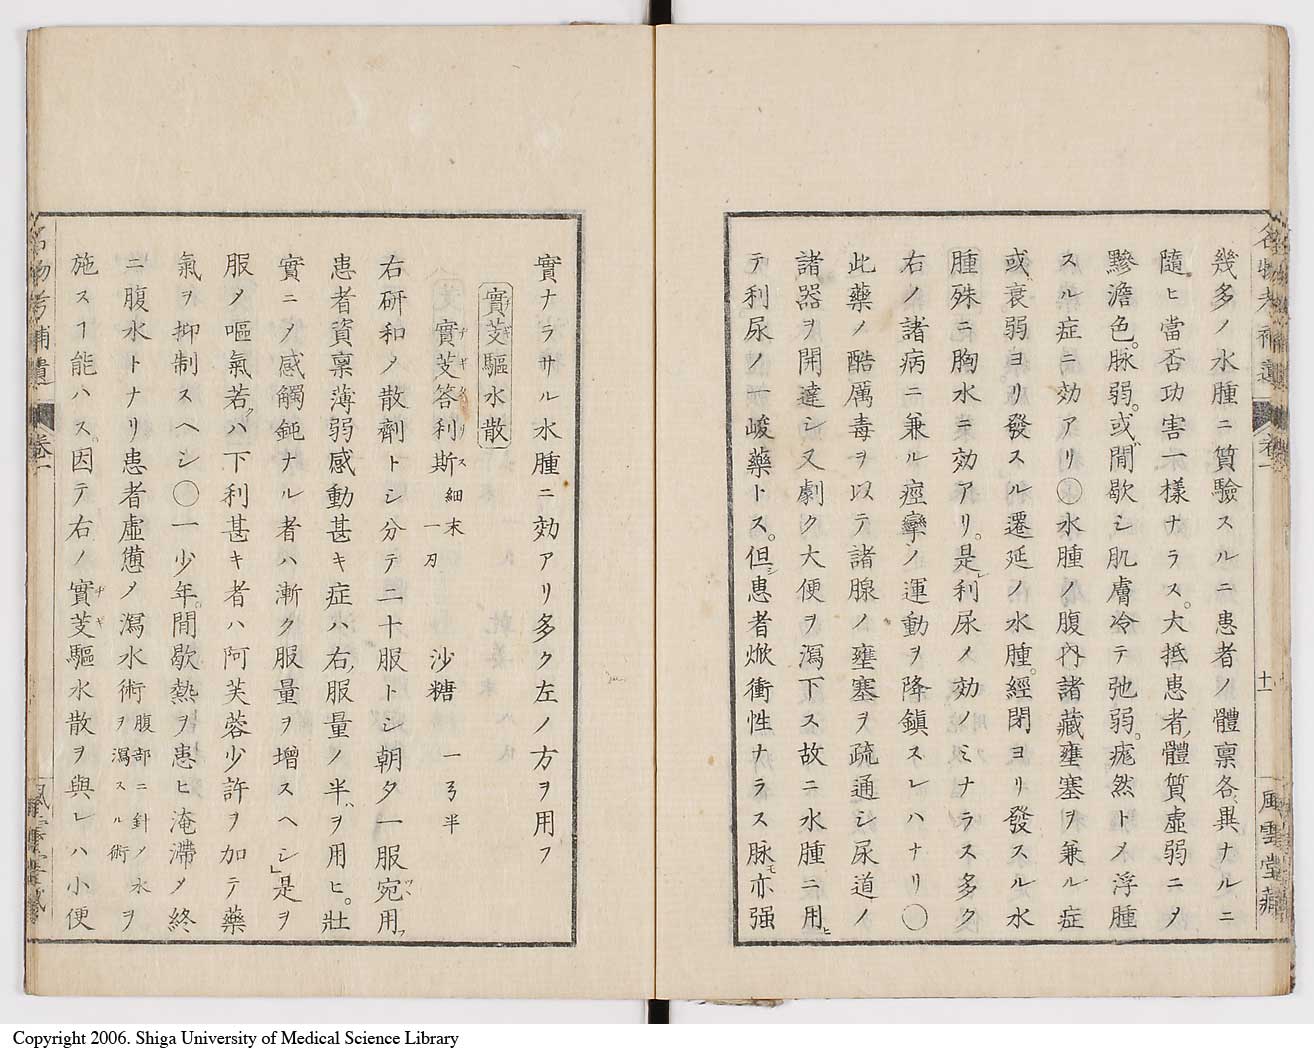 幾多ノ水腫ニ質驗スルニ患者ノ體稟各異ナルニ
隨ヒ當否功害一樣ナラス。大抵患者ノ體質虛弱ニメ
黲澹色。脉弱。或ハ間歇シ肌膚冷テ弛弱。痝然トメ浮腫
スル症ニ効アリ〇水腫ノ腹內諸藏壅塞ヲ兼ル症
或衰弱ヨリ發スル遷延ノ水腫。經閉ヨリ發スル水
腫殊ニ胸水ニ効アリ。是レ利尿ノ効ノミナラス多ク
右ノ諸病ニ兼ル痙攣ノ運動ヲ降鎭スレハナリ〇
此藥ノ酷厲毒ヲ以テ諸腺ノ壅塞ヲ疏通シ尿道ノ
諸器ヲ開達シ又劇ク大便ヲ瀉下ス故ニ水腫ニ用ヒ
テ利尿ノ一峻藥トス。但シ患者焮衝性ナラス脉モ亦强
名物考補遺
卷一
十一
風雲堂藏
實ナラサル水腫ニ効アリ多ク左ノ方ヲ用フ
實芰驅水散
實芰答利斯 細末 一刃 沙糖 一弓半
右研和メ散劑トシ分テ二十服トシ朝夕一服宛用フ
患者資稟薄弱感動甚キ症ハ右ノ服量ノ半ハヲ用ヒ。壯
實ニメ感觸鈍ナル者ハ漸ク服量ヲ增スヘシ」是ヲ
服メ嘔氣若クハ下利甚キ者ハ阿芙蓉少許ヲ加テ藥
氣ヲ抑制スヘシ〇一少年。間歇熱ヲ患ヒ淹滯メ終
ニ腹水トナリ患者虛憊メ瀉水術 腹部ニ針メ水ヲ瀉スル術 ヲ
施スヿ能ハス。因テ右ノ實芰驅水散ヲ與レハ小便
名物考補遺
卷一